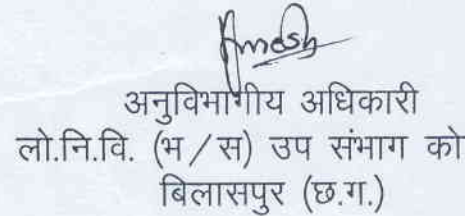 अनुविभागीय अधिकारी
लो.नि.वि. (भ/स) उप संभाग को
बिलासपुर (छ.ग.)